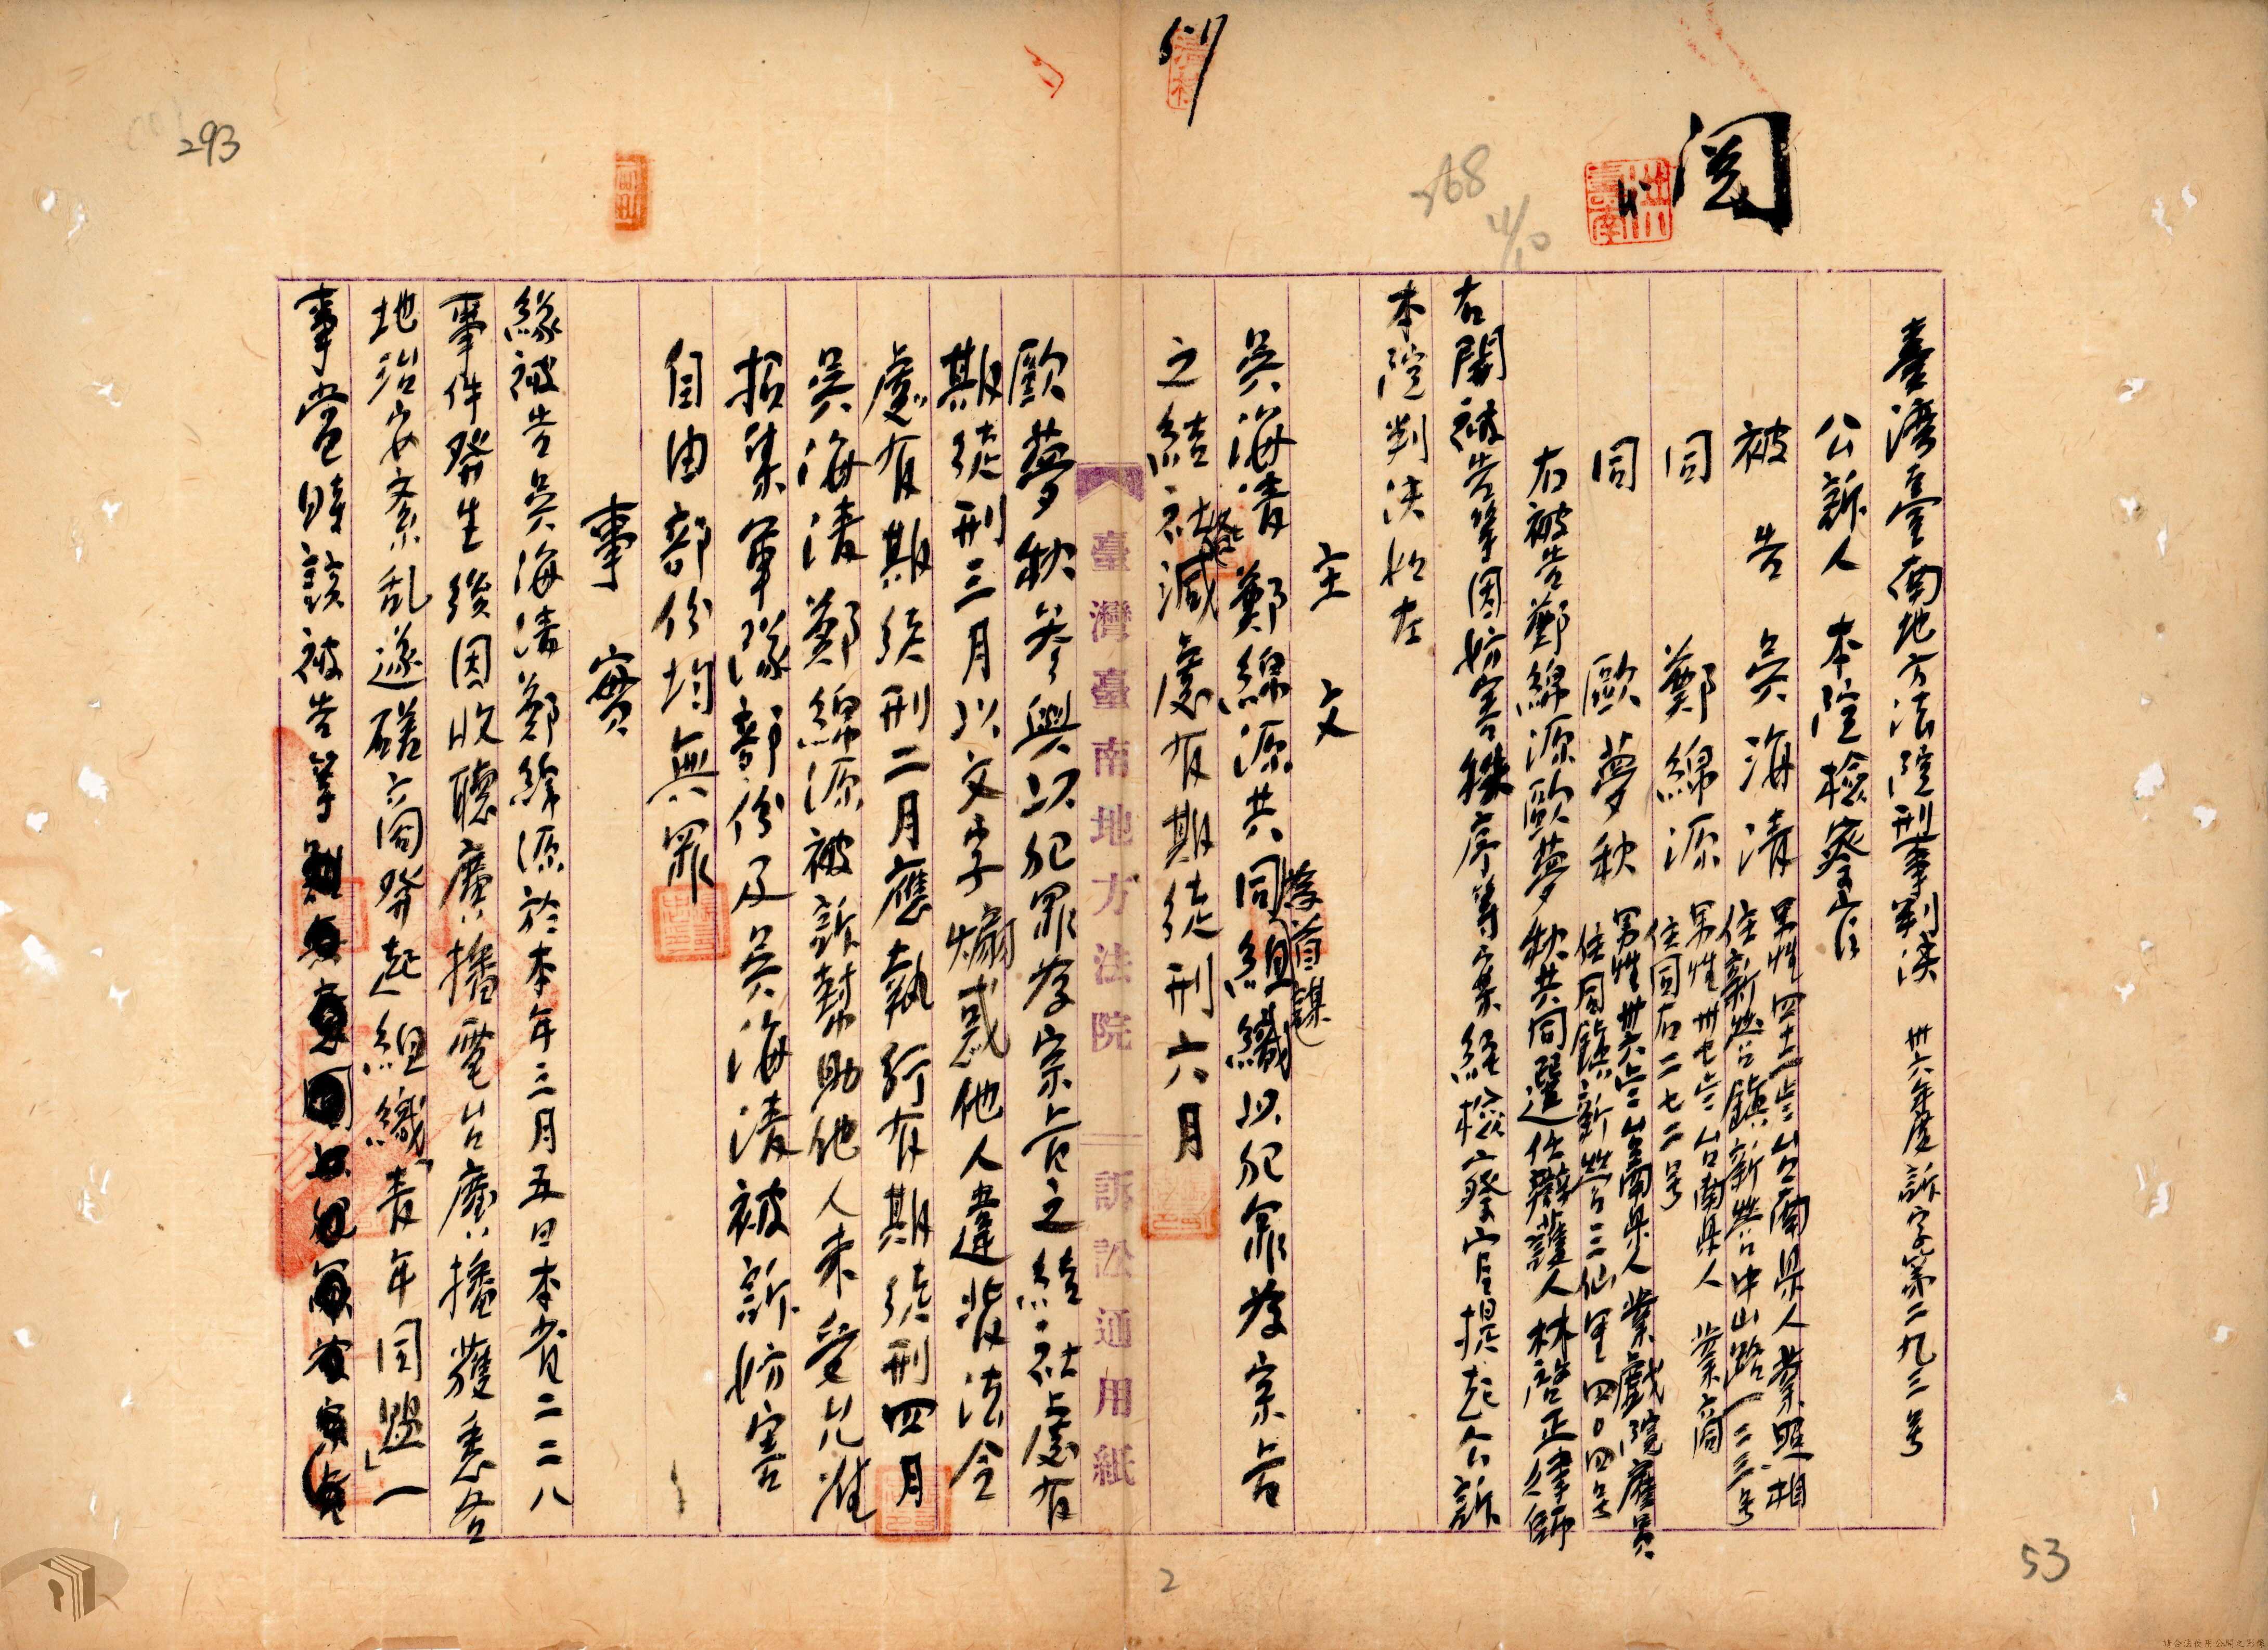 閱
293
568
11/10
臺灣臺南地方法院刑事判決 卅六年度訴字第二九三号
公訴人 本院檢察官
被告 吳海清 男性四十二歲台南県人業照相
住新営鎮新営中山路一三三号
同 鄭綿源 男性卅七歲台南県人 業商
住同右二七二号
同 歐夢秋 男性卅六歲台南県人業戲院雇員
住同鎮新営三仙里四〇四号
右被告鄭綿源歐夢秋共同選任辯護人林啓正律師
右開被告等因妨害秩序等案経檢察官提起公訴
本院判決如左
主文
吳海清鄭綿源共同組織以犯罪為宗旨
為首謀
之結社減處有期徒刑六月
歐夢秋參與以犯罪為宗旨之結社處有
期徒刑三月以文字煽惑他人違背法令
處有期徒刑二月應執行有期徒刑四月
吳海清鄭綿源被訴幫助他人未受允准
招集軍隊部份及吳海清被訴妨害
自由部份均無罪
事實
緣被告吳海清鄭綿源於本年三月五日本省二二八
事件發生後因收聽廣播電台廣播獲悉各
地治安紊乱遂磋商發起組織「青年同盟」一
事當時該被告等
臺灣臺南地方法院 訴訟通用紙
2
53
請合法使用公開之影像